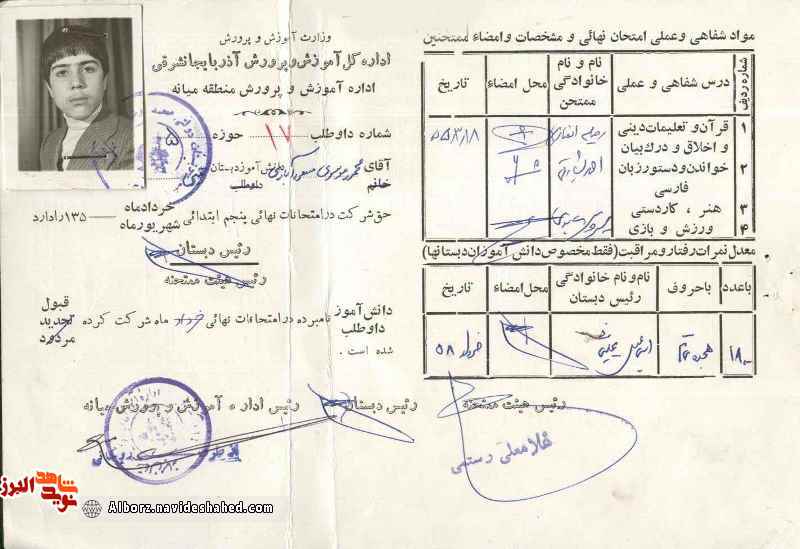 وزارت آموزش و پرورش
اداره کل آموزش و پرورش آذربایجانشرقی
اداره آموزش و پرورش منطقه میانه
شماره داوطلب ۱۷ حوزه
آقای
خانم
دانش‌آموز دبستان
داوطلب
حق شرکت در امتحانات نهائی پنجم ابتدائی خردادماه شهریورماه ۱۳۵ را دارد
رئیس دبستان
رئیس هیئت ممتحنه
دانش‌آموز
داوطلب
نامبرده در امتحانات نهائی خرداد ماه شرکت کرده
قبول
تجدید
مردود
شده است .
رئیس دبستان
رئیس اداره آموزش و پرورش میانه
مواد شفاهی و عملی امتحان نهائی و مشخصات و امضاء ممتحنین
شماره ردیف
درس شفاهی و عملی
نام و نام خانوادگی ممتحن
محل امضاء
تاریخ
۱ قرآن و تعلیمات دینی و اخلاق و درک بیان
۲ خواندن و دستور زبان فارسی
۳ هنر ، کاردستی
۴ ورزش و بازی
معدل نمرات رفتار و مراقبت (فقط مخصوص دانش آموزان دبستانها)
باعدد
باحروف
نام و نام خانوادگی رئیس دبستان
محل امضاء
تاریخ
۱۸۰۰
هجده تمام
خرداد ۵۸
رئیس هیئت ممتحنه
غلامعلی رستمی
شاهد
نوید
البرز
Alborz.navideshahed.com